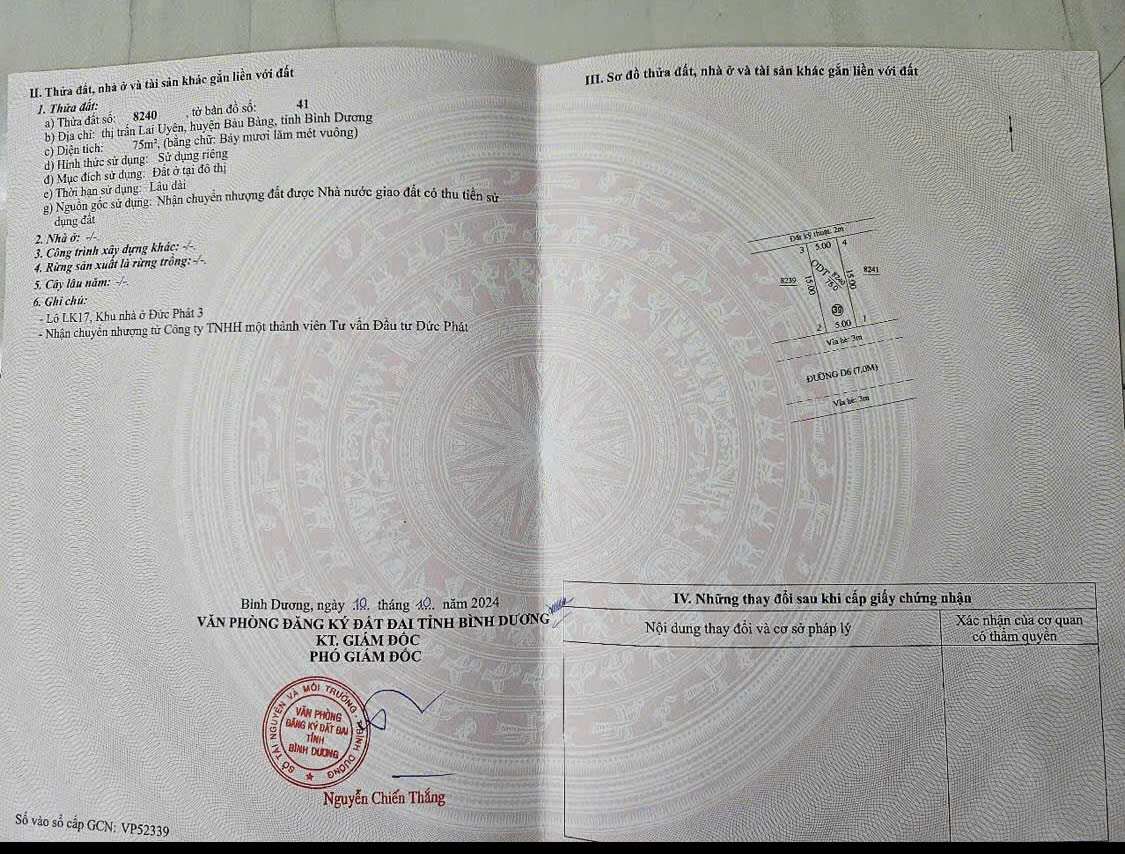 II. Thửa đất, nhà ở và tài sản khác gắn liền với đất
1. Thửa đất:
a) Thửa đất số: 8240 , tờ bản đồ số: 41
b) Địa chỉ: thị trấn Lai Uyên, huyện Bàu Bàng, tỉnh Bình Dương
c) Diện tích: 75m², (bằng chữ: Bảy mươi lăm mét vuông)
d) Hình thức sử dụng: Sử dụng riêng
đ) Mục đích sử dụng: Đất ở tại đô thị
e) Thời hạn sử dụng: Lâu dài
g) Nguồn gốc sử dụng: Nhận chuyển nhượng đất được Nhà nước giao đất có thu tiền sử
dụng đất
2. Nhà ở: -/-.
3. Công trình xây dựng khác: -/-.
4. Rừng sản xuất là rừng trồng: -/-.
5. Cây lâu năm: -/-.
6. Ghi chú:
- Lô LK17, Khu nhà ở Đức Phát 3
- Nhận chuyển nhượng từ Công ty TNHH một thành viên Tư vấn Đầu tư Đức Phát
Bình Dương, ngày 10. tháng 10. năm 2024
VĂN PHÒNG ĐĂNG KÝ ĐẤT ĐAI TỈNH BÌNH DƯƠNG
KT. GIÁM ĐỐC
PHÓ GIÁM ĐỐC
SỞ TÀI NGUYÊN VÀ MÔI TRƯỜNG T.BÌNH DƯƠNG
VĂN PHÒNG
ĐĂNG KÝ ĐẤT ĐAI
TỈNH
BÌNH DƯƠNG
Nguyễn Chiến Thắng
Số vào sổ cấp GCN: VP52339
III. Sơ đồ thửa đất, nhà ở và tài sản khác gắn liền với đất
Đất kỹ thuật: 2m
3 5.00 4
8239 15.00 ODT 8240 75.0 15.00 8241
39
2 5.00 1
Vỉa hè: 3m
ĐƯỜNG D6 (7.0M)
Vỉa hè: 3m
IV. Những thay đổi sau khi cấp giấy chứng nhận
Nội dung thay đổi và cơ sở pháp lý
Xác nhận của cơ quan
có thẩm quyền